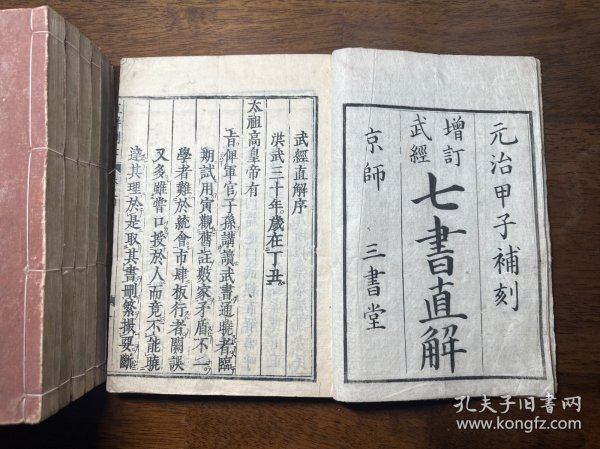 元治甲子補刻
增訂
武經
七書直解
京師
三書堂
武經直解序
洪武三十年。歲在丁丑。
太祖高皇帝有
旨俾軍官子孫講讀武書通曉者臨
期試用寅觀舊註數家矛盾不一
學者難於統會市肆板行者闕誤
又多雖嘗口授於人而竟不能曉
達其理於是取其書刪繁撮要斷
孔夫子旧书网
www.kongfz.com